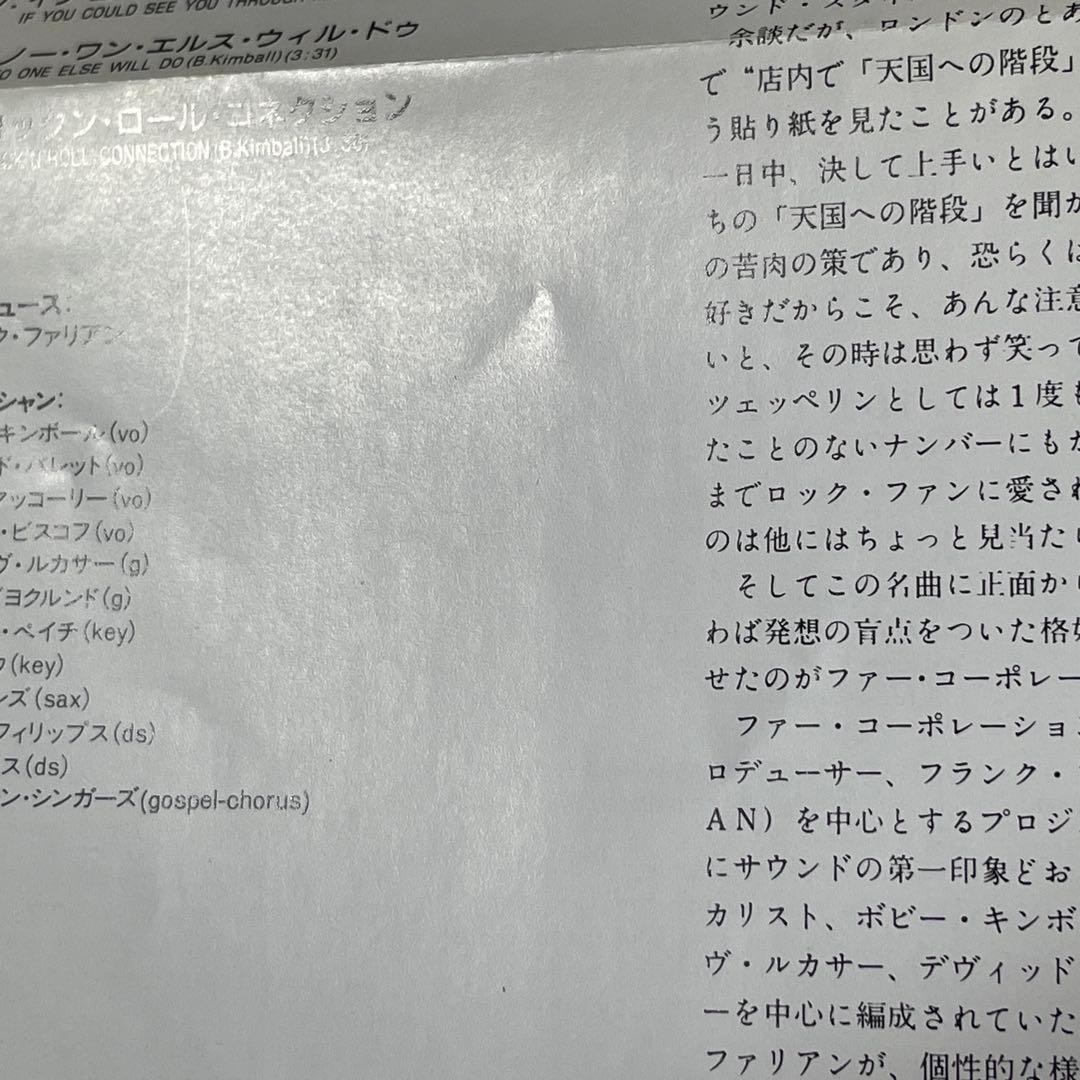 IF YOU COULD SEE YOU THROUGH
ノー・ワン・エルス・ウィル・ドゥ
O ONE ELSE WILL DO (B.Kimball) (3:31)
ン・ロール・コネクション
'N' ROLL CONNECTION (B.Kimball) (3:30)
ュース:
ク・ファリアン
シャン:
キンボール(vo)
ド・バレット(vo)
マッコーリー(vo)
・ビスコフ(vo)
ヴ・ルカサー(g)
ヨクルンド(g)
・ペイチ(key)
(key)
ンズ(sax)
フィリップス(ds)
ス(ds)
ン・シンガーズ(gospel-chorus)
余談だが、ロンドンのとあ
で“店内で「天国への階段」
う貼り紙を見たことがある。
一日中、決して上手いとはい
ちの「天国への階段」を聞か
の苦肉の策であり、恐らくは
好きだからこそ、あんな注意
いと、その時は思わず笑って
ツェッペリンとしては1度も
たことのないナンバーにもか
までロック・ファンに愛され
のは他にはちょっと見当たら
そしてこの名曲に正面から
わば発想の盲点をついた格好
せたのがファー・コーポレー
ファー・コーポレーション
ロデューサー、フランク・
AN）を中心とするプロジ
にサウンドの第一印象どお
カリスト、ボビー・キンボ
ヴ・ルカサー、デヴィッド
ーを中心に編成されていた
ファリアンが、個性的な様